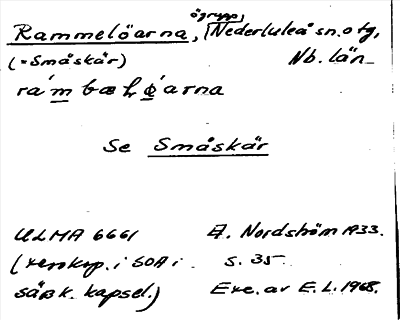 ögrupp
Rammelöarna, Nederluleå sn. o tg,
(= Småskär) Nb. län
rá m bæ ɫ ǿ arna
Se Småskär
ULMA 6661 E. Nordström 1933.
(renskrp. i SOA i s. 35
särsk. kapsel.) Exc. av E. L. 1968.